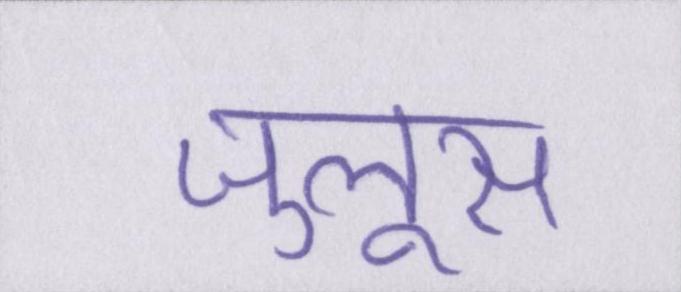 जुलूस